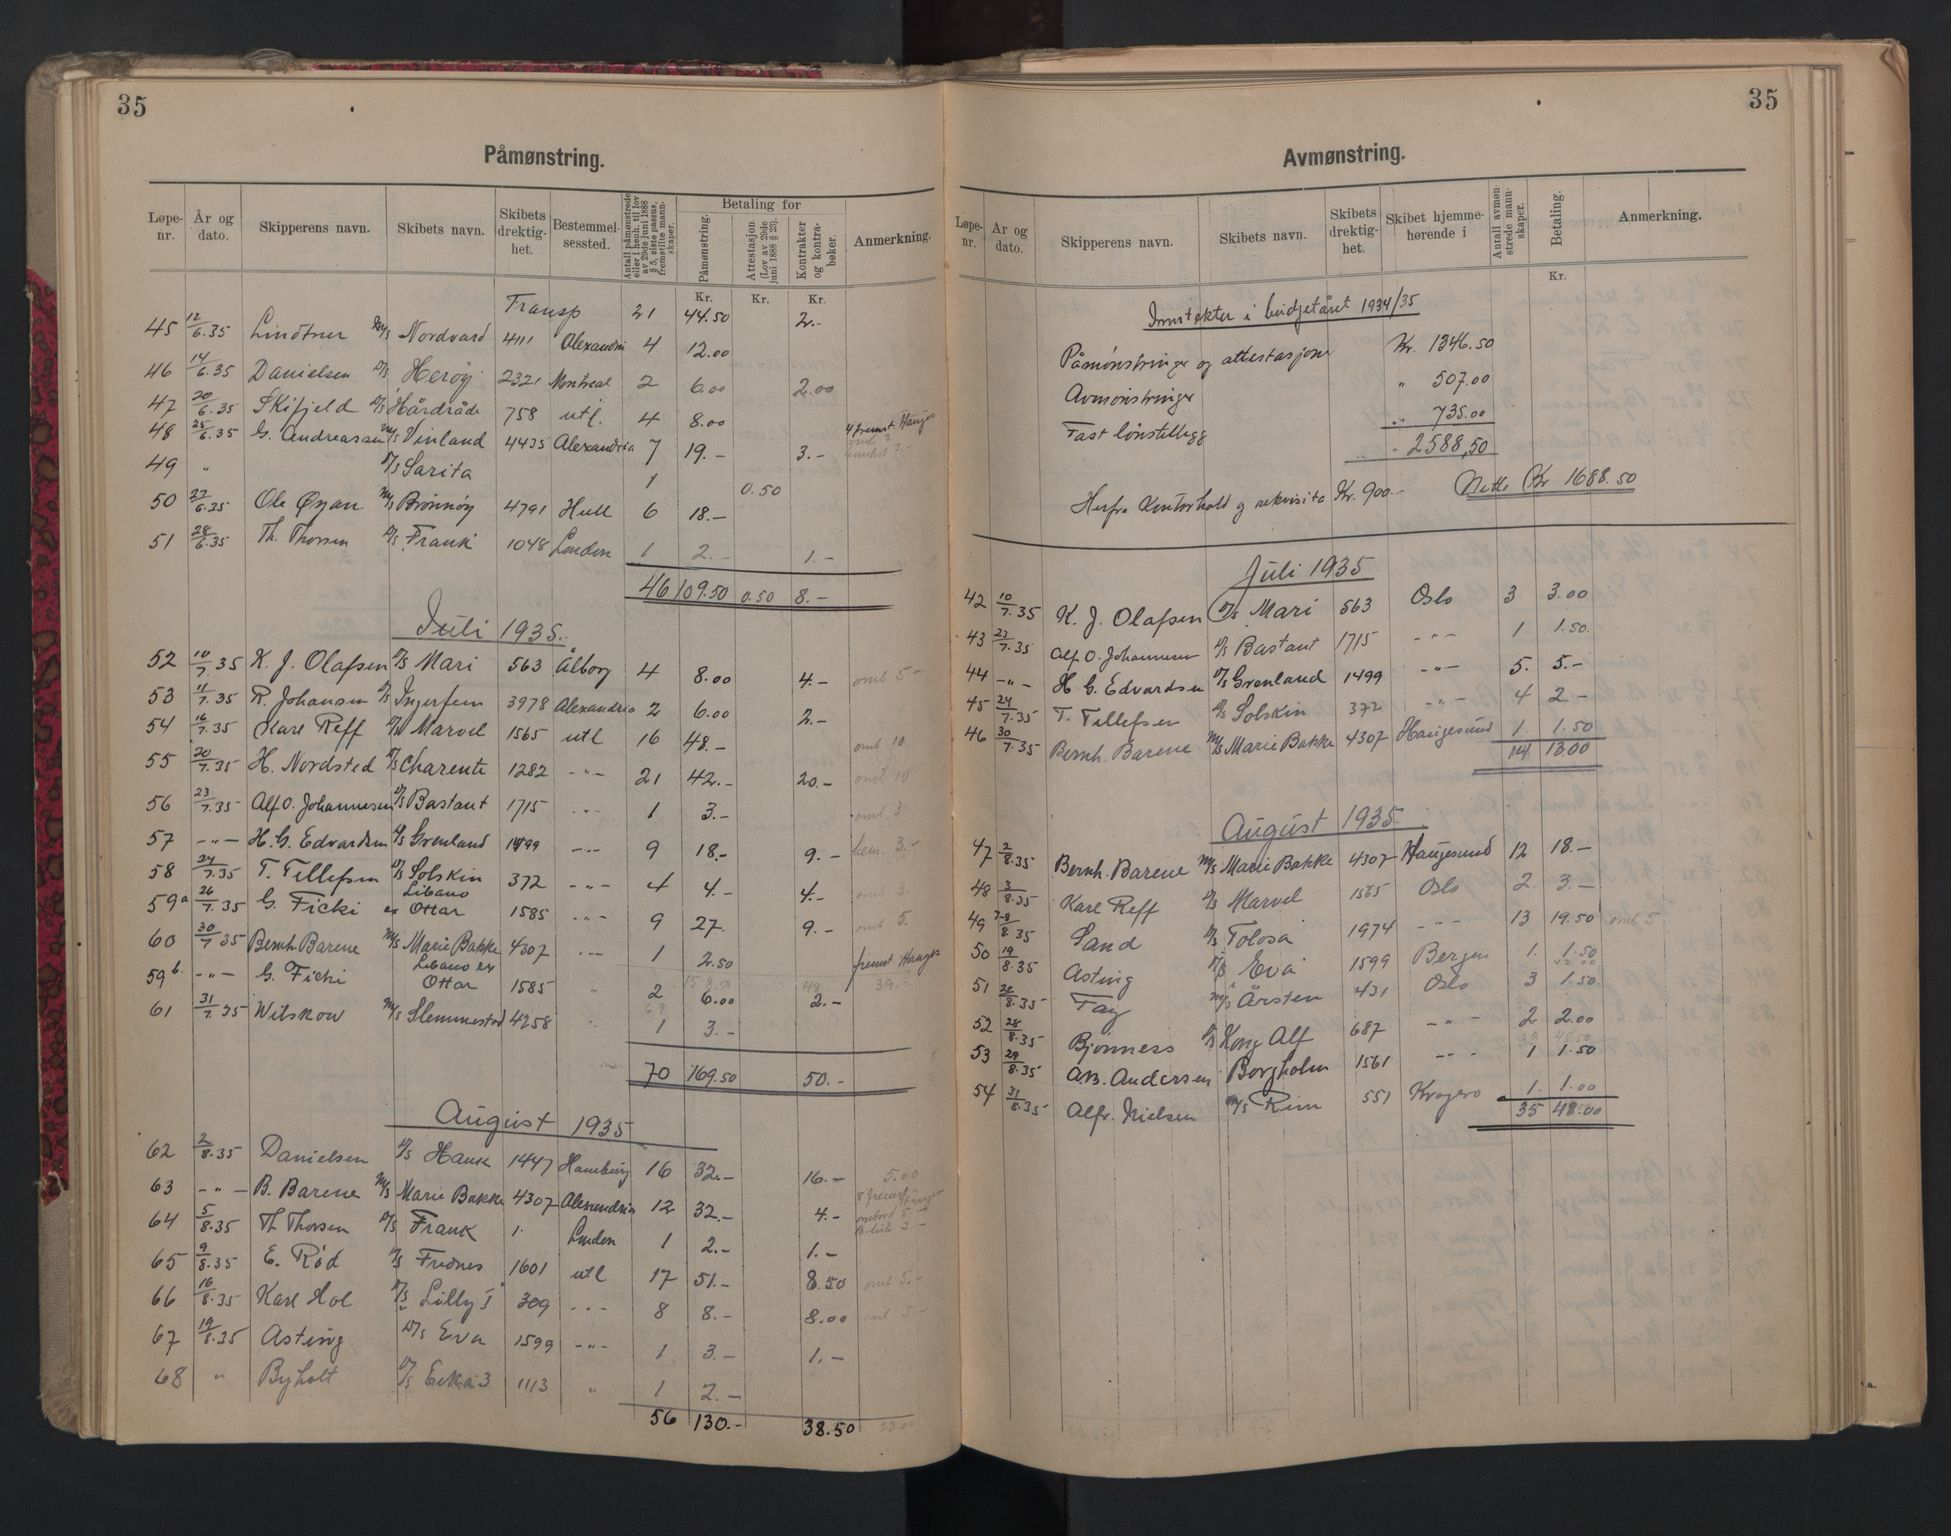 35
Påmønstring.
Løpe-nr. År og dato. Skipperens navn. Skibets navn. Skibets drektig-het. Bestemmel-sessted. Antall påmønstrede eller i henh. til lov av 29de juni 1888 § 5, siste passus, fremstilte mann-skaper. Betaling for Påmønstring. Attestasjon (Lov av 29de juni 1888 § 23). Kontrakter og kontra-bøker. Anmerkning.
Kr. Kr. Kr.
Transp 21 44.50 2.-
45 12/6.35 Lindtner M/S Nordvard 4111 Alexandri 4 12.00
46 14/6.35 Danielsen D/S Herøy 2321 Montreal 2 6.00 2.00
47 20/6.35 Skifjeld D/S Hårdråde 758 utl. 4 8.00
48 25/6.35 G. Andreassen M/S Vinland 4435 Alexandria 7 19.- 3.- 4 fremst. Haug
49 " D/S Sarita 1 0.50
50 27/6.35 Ole Øyan M/S Brønnøy 4791 Hull 6 18.-
51 28/6.35 Th. Thorsen D/S Frank 1048 London 1 2.- 1.-
46 109.50 0.50 8.-
Juli 1935.
52 10/7.35 K. J. Olafsen D/S Mari 563 Ålborg 4 8.00 4.- omb 5-
53 11/7.35 R. Johansen D/S Ingerfem 3978 Alexandria 2 6.00 2.-
54 16/7.35 Karl Reff D/S Marvel 1565 utl 16 48.- omb 10
55 20/7.35 H. Nordsted D/S Charente 1282 -"- 21 42.- 20.- omb 10
56 23/7.35 Alf O. Johannesen D/S Bastant 1715 -"- 1 3.- omb 3
57 -"- H. G. Edvardsen D/S Grenland 1499 -"- 9 18.- 9.- hem. 3.-
58 24/7.35 T. Tellefsen D/S Solskin 372 -"- 4 4.- 4.- omb 3.
59a 26/7.35 G. Ficki Libano ex Ottar 1585 -"- 9 27. 9.- omb 5.
60 30/7 35 Bernh Barene M/S Marie Bakke 4307 -"- 1 2.50 fremst. Hauges
59b. -"- G. Ficki Libano ex Ottar 1585 " 2 6.00 2.- 39.-
61 31/7.35 Wilskow M/S Slemmestad 4258 " 1 3.-
70 169.50 50.-
August 1935
62 2/8.35 Danielsen D/S Hauk 1447 Hamburg 16 32.- 16.- 5.00
63 -"- B. Barene M/S Marie Bakke 4307 Alexandria 12 32.- 4.- 8 fremst
64 5/8.35 Th Thorsen D/S Frank 1. London 1 2.- 1.-
65 9/8.35 E. Rød D/S Frednes 1601 utl 17 51.- 8.50 omb 5.-
66 16/8.35 Karl Hol D/S Lilly I 309 -"- 8 8.- 8.00 omb 5-
67 19/8.35 Asting D/S Eva 1599 -"- 1 3.- 1.-
68 " Byholt D/S Erka 3 1113 " 1 2.-
56 130.- 38.50
35
Avmønstring.
Løpe-nr. År og dato. Skipperens navn. Skibets navn. Skibets drektig-het. Skibet hjemme-hørende i Antall avmøn-strede mann-skaper. Betaling. Anmerkning.
Kr.
Inntekter i budgetåret 1934/35
Påmønstringer og attestasjoner Kr. 1346.50
Avmønstringer " 507.00
Fast lønstillegg " 735.00
" 2588,50
Herfra Kontorhold og rekvisita Kr. 900.- Netto Kr 1688.50
Juli 1935
42 10/7.35 K. J. Olafsen D/S Mari 563 Oslo 3 3.00
43 23/7.35 Alf O. Johannesen D/S Bastant 1715 -"- 1 1.50.
44 -"- H G. Edvardsen D/S Grenland 1499 -"- 5. 5.-
45 24/7.35 T. Tellefsen D/S Solskin 372 -"- 4 2.-
46 30/7.35 Bernh. Barene M/S Marie Bakke 4307 Haugesund 1. 1.50
14 13.00
August 1935.
47 2/8.35 Bernh. Barene M/S Marie Bakke 4307 Haugesund 12 18.-
48 3/8.35 Karl Reff D/S Marvel 1565 Oslo 2. 3.-
49 7-8/8.35 Sand D/S Tolosa 1974 -"- 13 19.50 omb 5
50 19/8.35 Asting D/S Eva 1599 Bergen 1. 1.50
51 26/8.35 Fay M/S Årsten 431 Oslo 3 1.50.
52 28/8.35 Bjønness D/S Kong Alf 687 -"- 2 2.00
53 29/8.35 A.B. Andersen Borgholm 1561 -"- 1 1.50
54 31/8.35 Alfr. Nielsen M/S Rim 551 Kragerø 1. 1.00
35 48.00